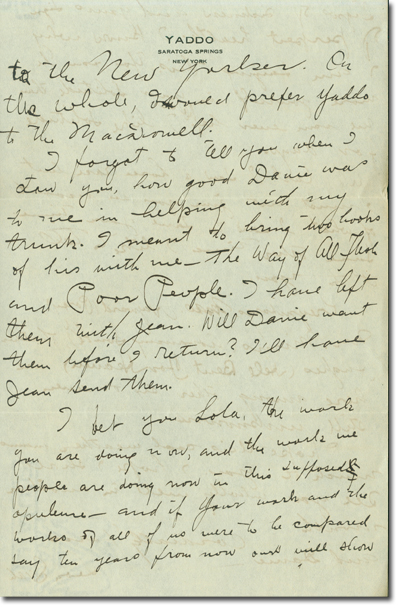 YADDO
SARATOGA SPRINGS
NEW YORK
to the New Yorker. On
the whole, I would prefer Yaddo
to the MacDowell.
I forgot to tell you when I
saw you, how good Davie was
to me in helping with my
trunk. I meant to bring two books
of his with me — The Way of All Flesh
and Poor People. I have left
them with Jean. Will Davie want
them before I return? I'll have
Jean send them.
I bet you Lola, the work
you are doing now, and the work we
people are doing now in this supposed
opulence — and if your work and the
works of all of us were to be compared
say ten years from now ours will show